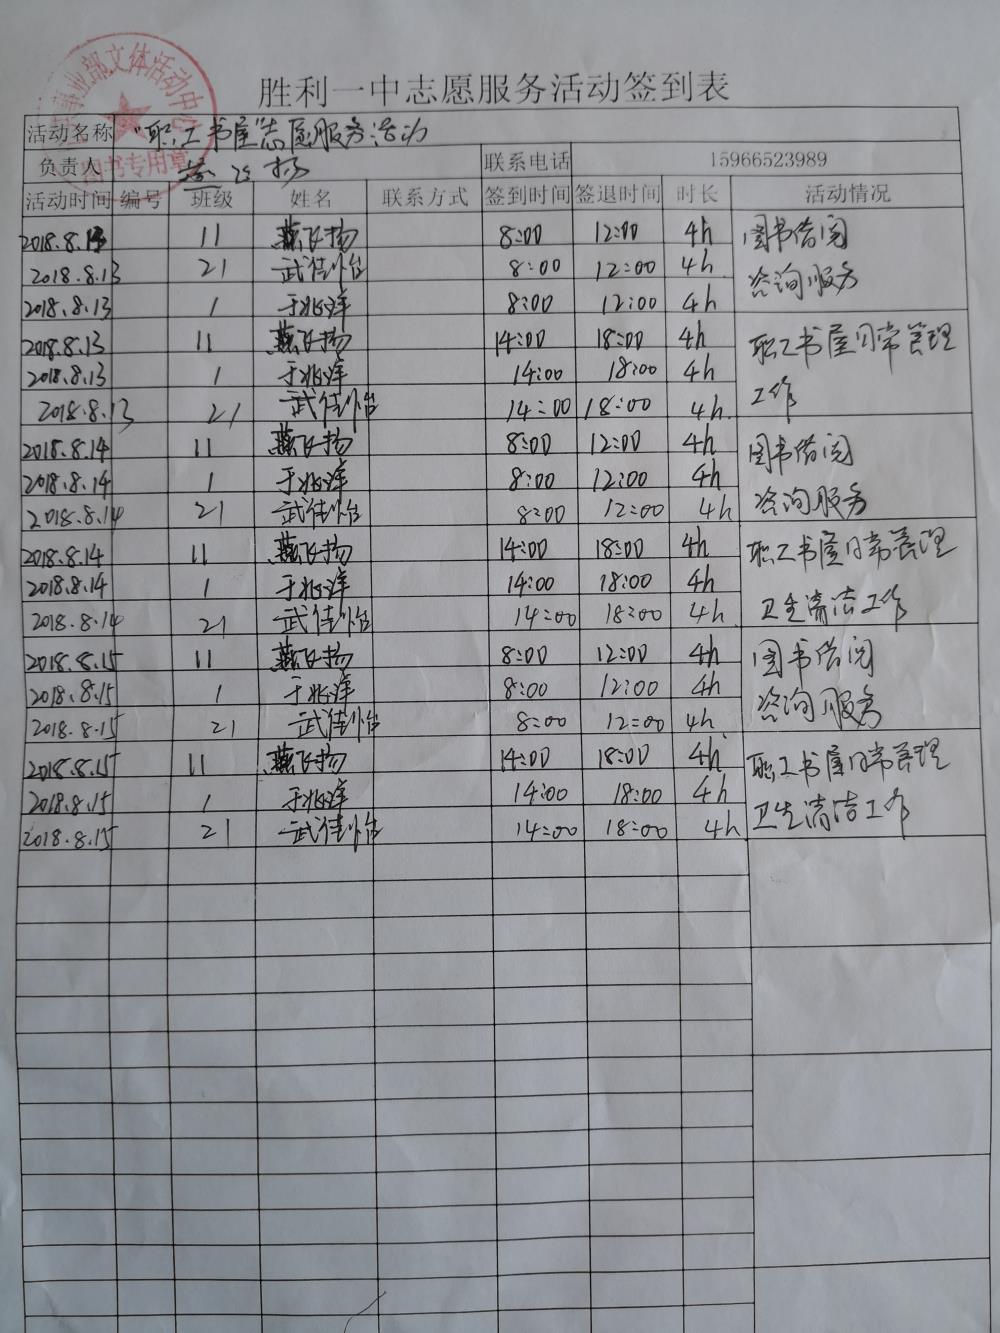 事业部文体活动中心
图书专用章
胜利一中志愿服务活动签到表
活动名称 "职工书屋"志愿服务活动
负责人 燕飞扬 联系电话 15966523989
活动时间 编号 班级 姓名 联系方式 签到时间 签退时间 时长 活动情况
2018.8.13 11 燕飞扬 8:00 12:00 4h 图书借阅
2018.8.13 21 武佳怡 8:00 12:00 4h 咨询服务
2018.8.13 1 于兆洋 8:00 12:00 4h
2018.8.13 11 燕飞扬 14:00 18:00 4h 职工书屋日常管理
2018.8.13 1 于兆洋 14:00 18:00 4h 工作
2018.8.13 21 武佳怡 14:00 18:00 4h
2018.8.14 11 燕飞扬 8:00 12:00 4h 图书借阅
2018.8.14 1 于兆洋 8:00 12:00 4h 咨询服务
2018.8.14 21 武佳怡 8:00 12:00 4h
2018.8.14 11 燕飞扬 14:00 18:00 4h 职工书屋日常管理
2018.8.14 1 于兆洋 14:00 18:00 4h 卫生清洁工作
2018.8.14 21 武佳怡 14:00 18:00 4h
2018.8.15 11 燕飞扬 8:00 12:00 4h 图书借阅
2018.8.15 1 于兆洋 8:00 12:00 4h 咨询服务
2018.8.15 21 武佳怡 8:00 12:00 4h
2018.8.15 11 燕飞扬 14:00 18:00 4h 职工书屋日常管理
2018.8.15 1 于兆洋 14:00 18:00 4h 卫生清洁工作
2018.8.15 21 武佳怡 14:00 18:00 4h